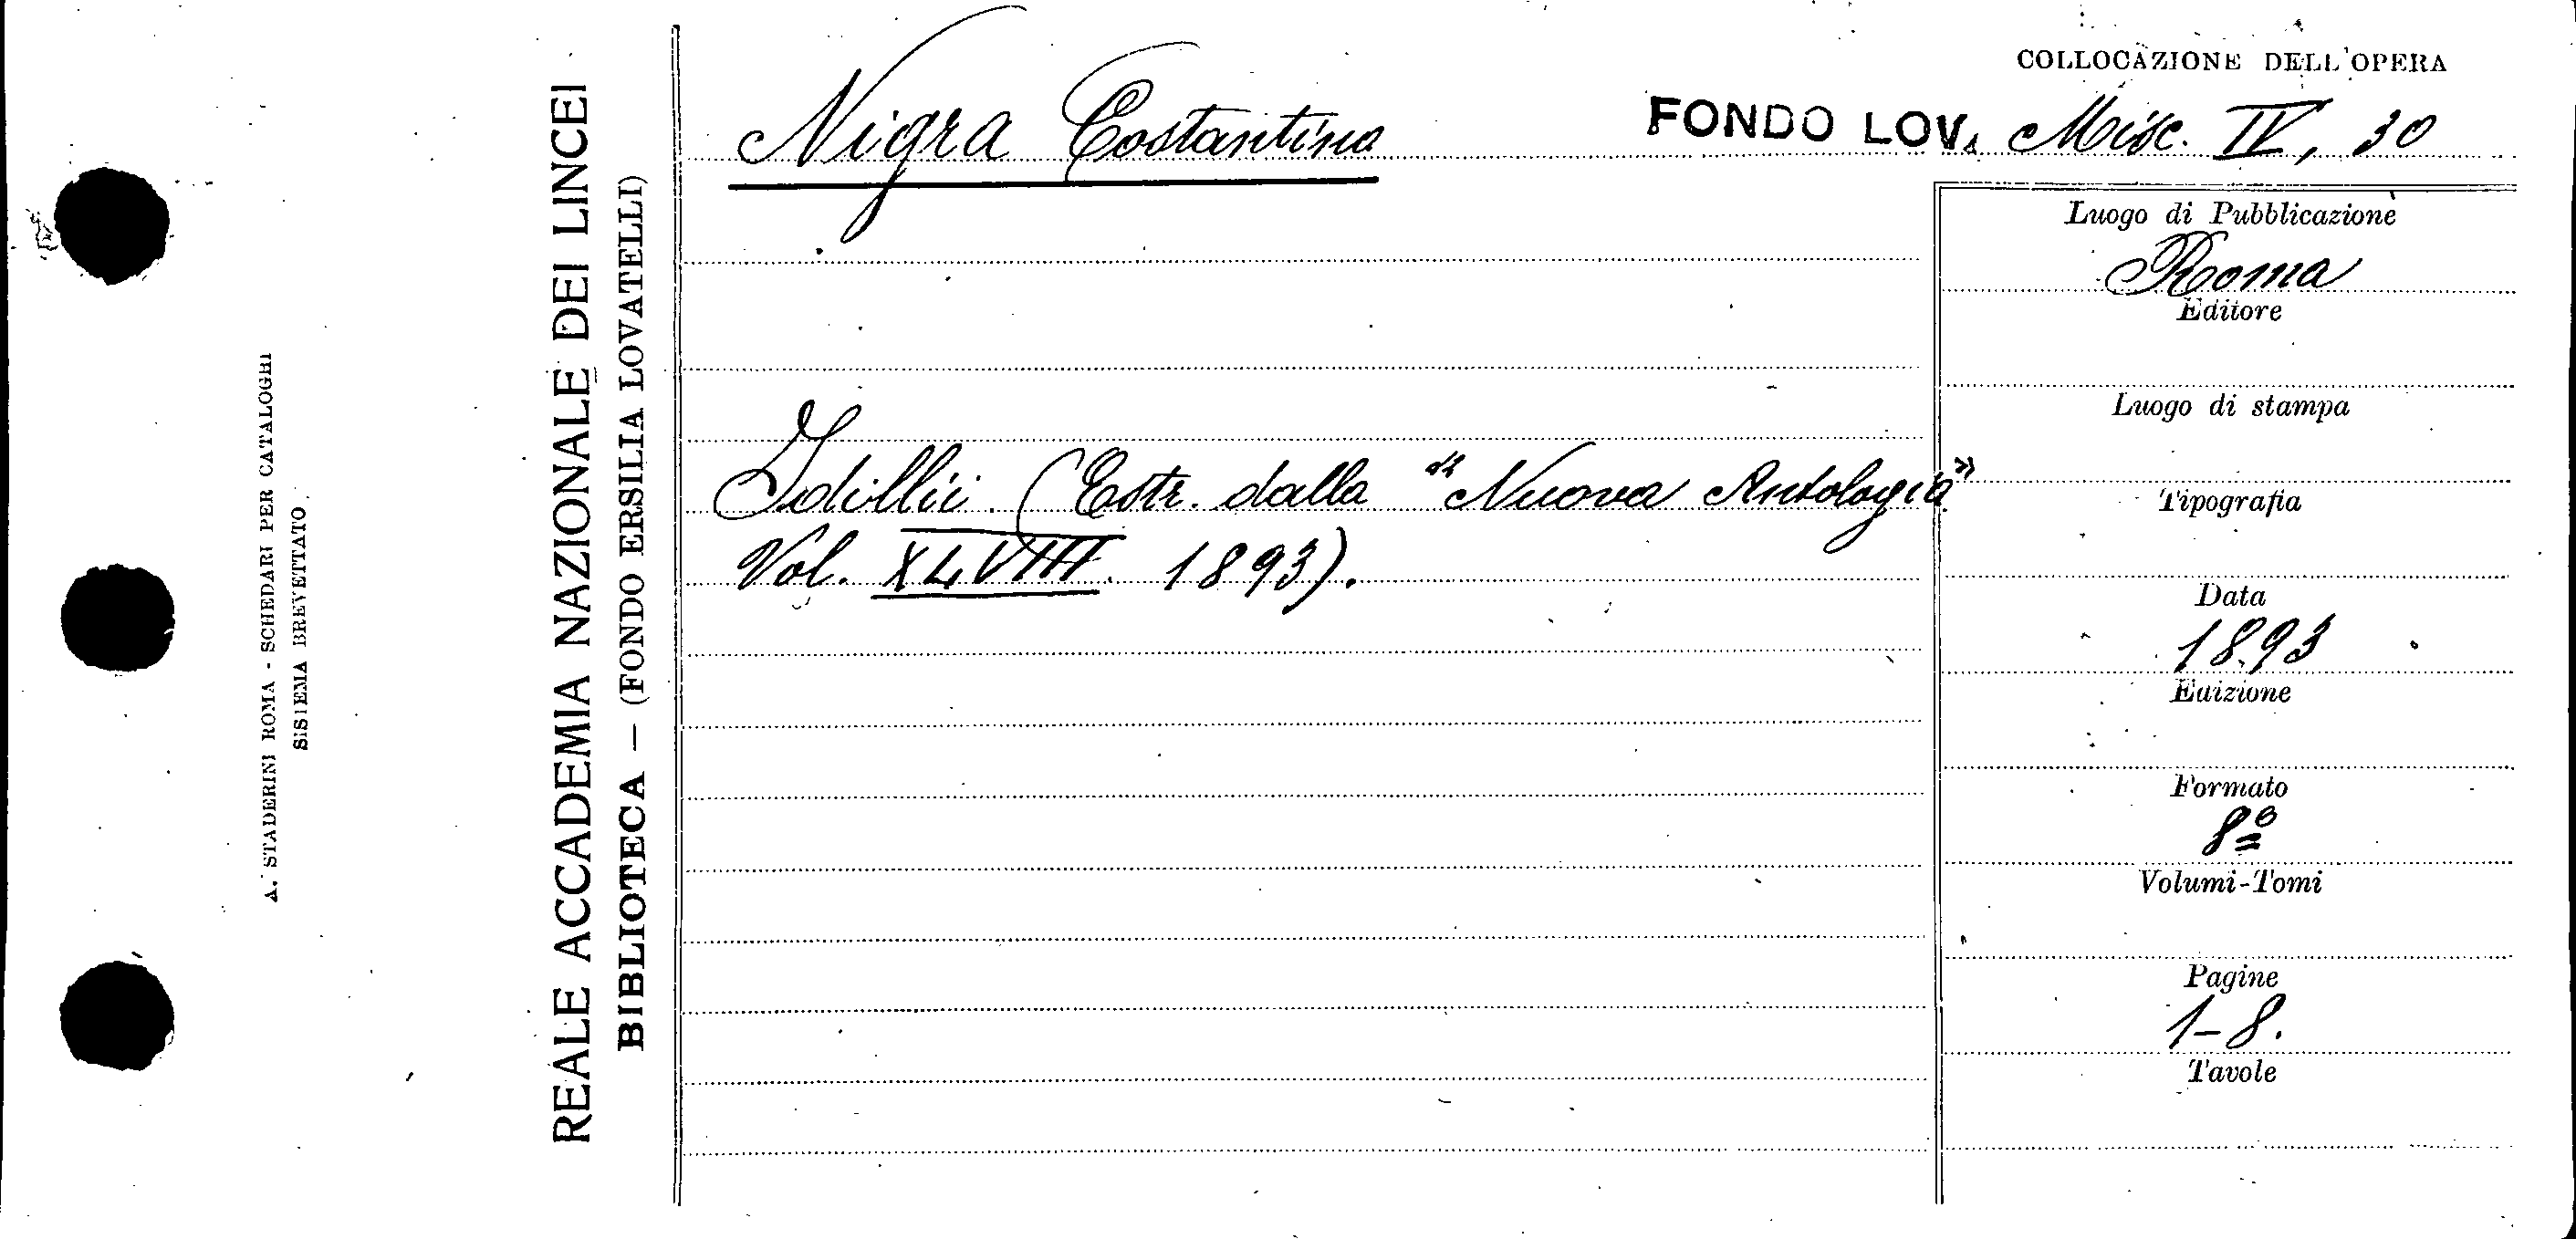 COLLOCAZIONE DELL'OPERA
Nigra Costantino
FONDO LOV. Misc. IV, 30
Idillii. (Estr. dalla "Nuova Antologia"
Vol. XLVIII. 1893).
Luogo di Pubblicazione
Roma
Editore
Luogo di stampa
Tipografia
Data
1893
Edizione
Formato
8º
Volumi-Tomi
Pagine
1-8.
Tavole
REALE ACCADEMIA NAZIONALE DEI LINCEI
BIBLIOTECA — (FONDO ERSILIA LOVATELLI)
A. STADERINI ROMA - SCHEDARI PER CATALOGHI
SISTEMA BREVETTATO